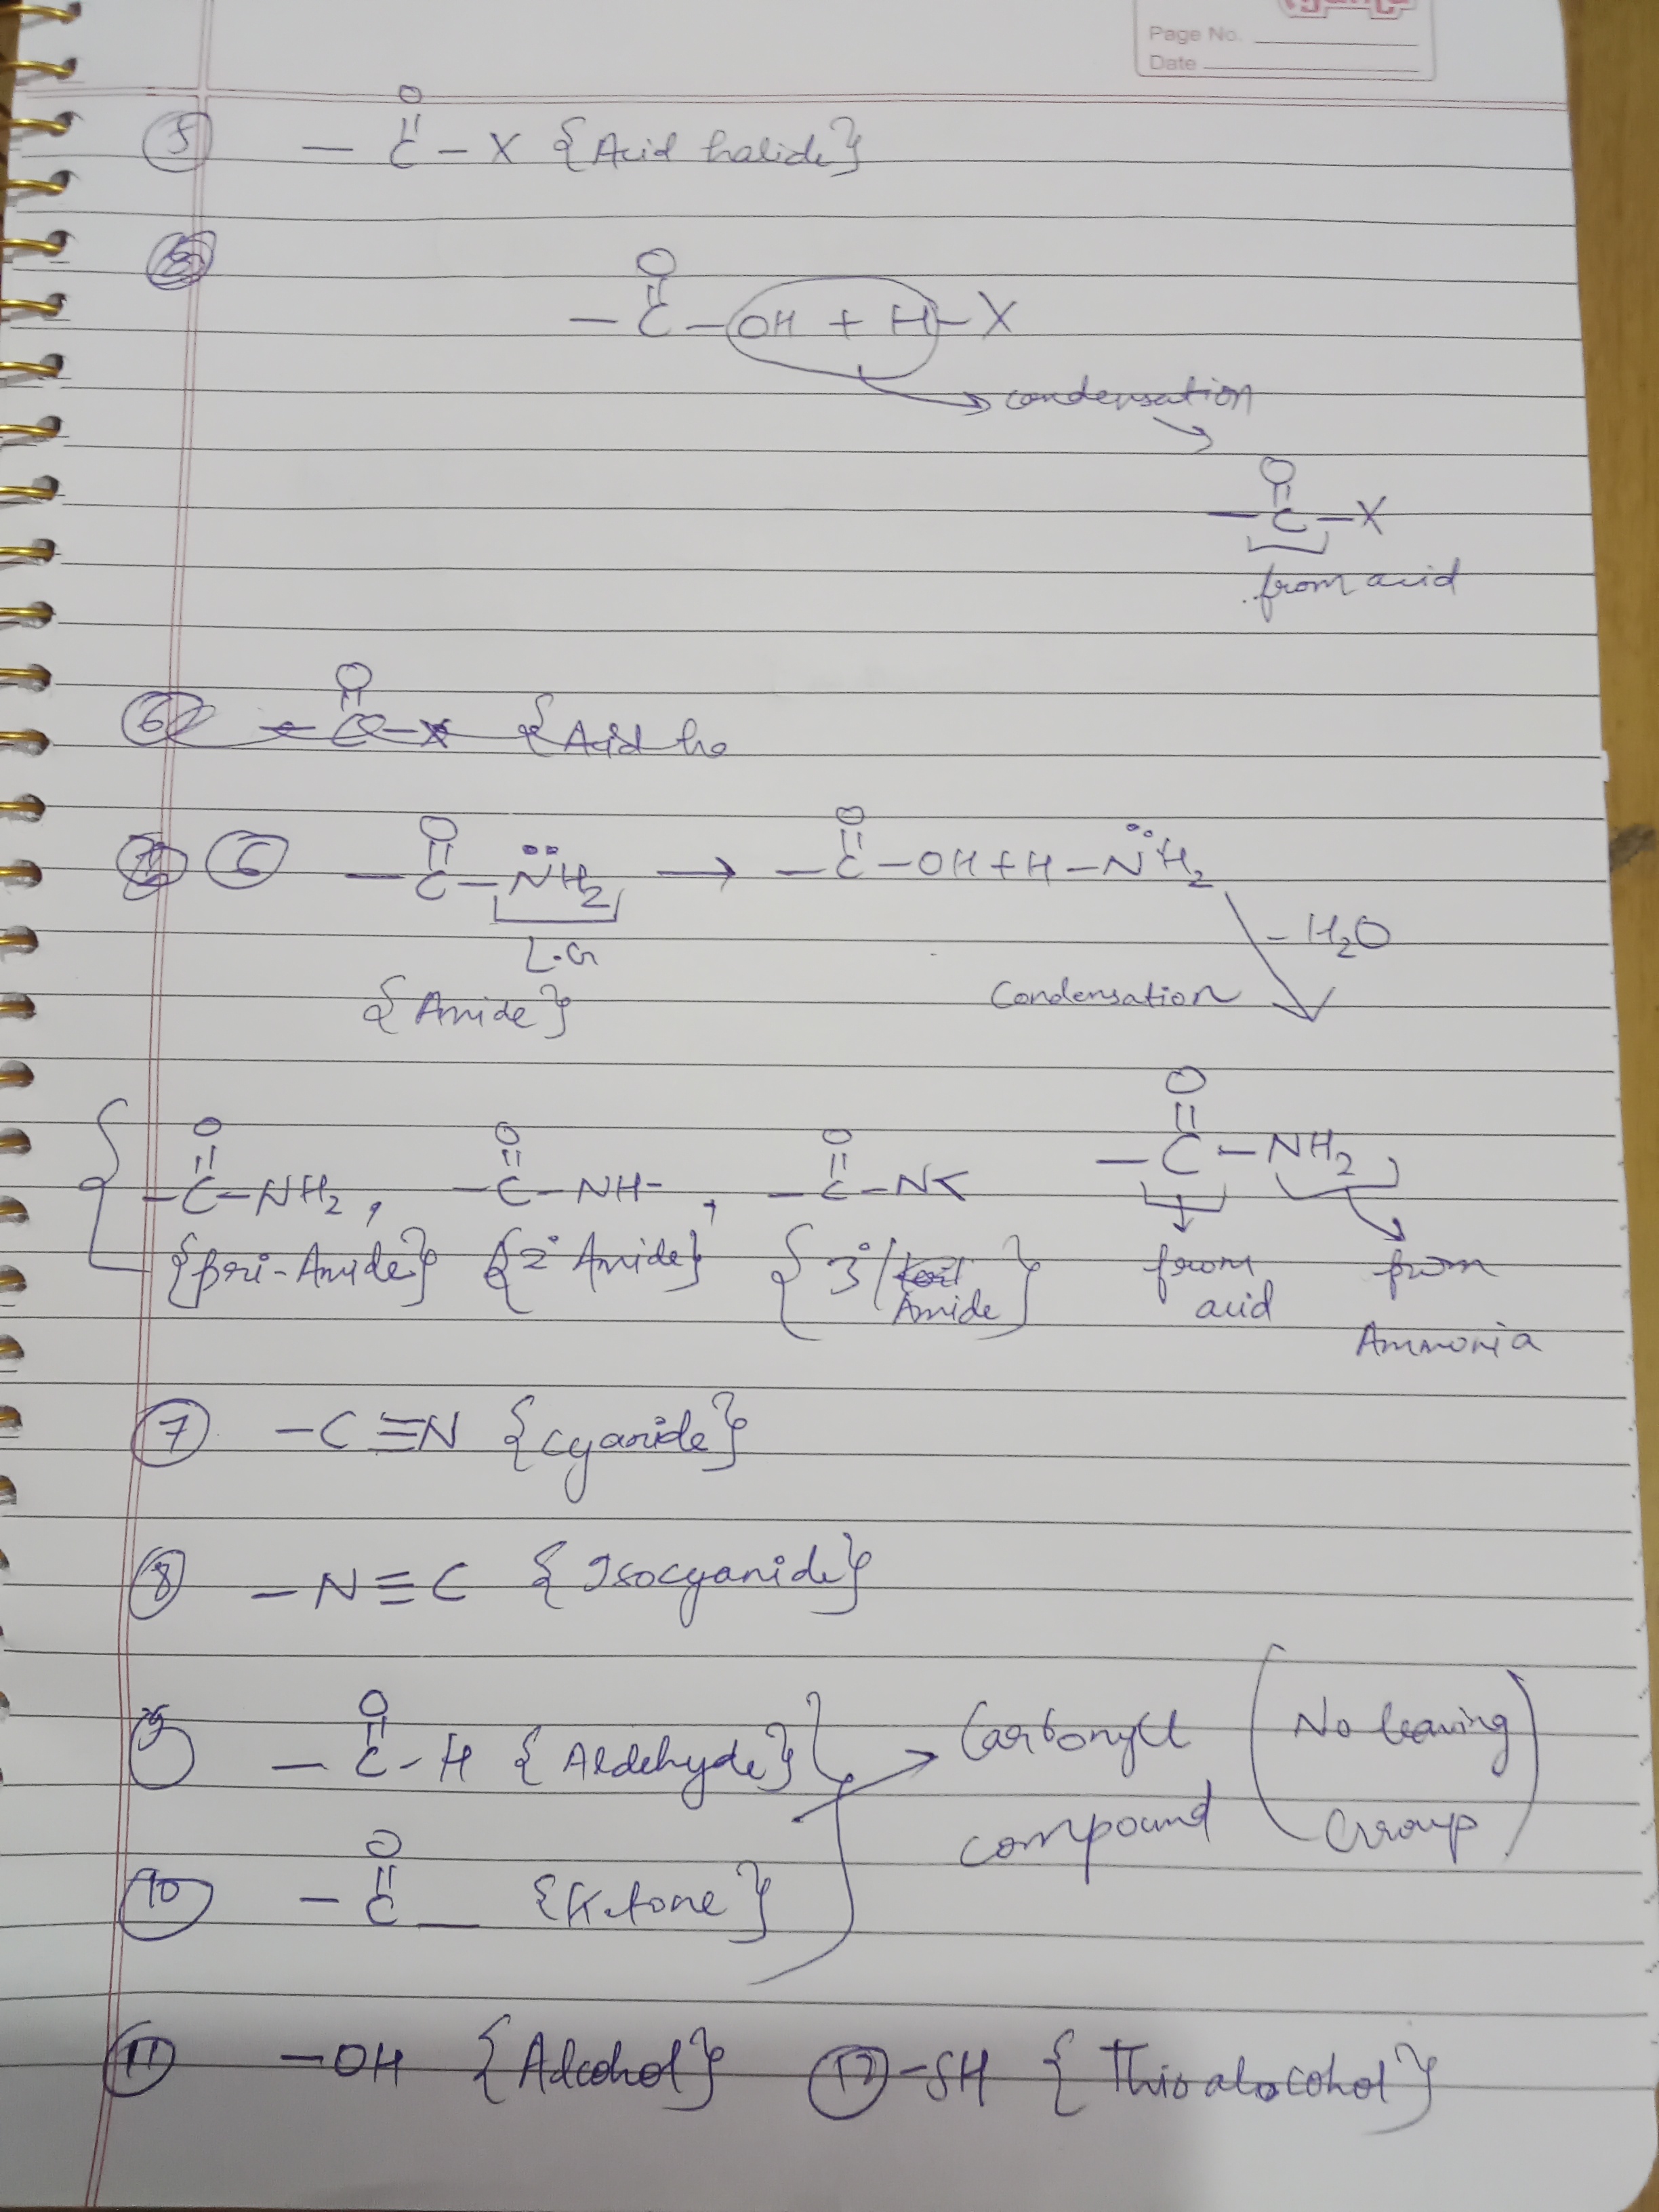 Page No.
Date
O
||
5 — C – X {Acid halide}
O
||
— C – OH + H – X
→ condensation
O
||
— C – X
from acid
O
||
6 – C – X {Acid ha
O O
|| ||
6 — C – NH2 → — C – OH + H – NH2
L.G – H2O
{Amide} Condensation
O
||
— C – NH2
O O O
|| || ||
– C – NH2 , – C – NH – , – C – N<
{pri-Amide} {2° Amide} {3°/ Amide}
from acid from Ammonia
7 – C ≡ N {cyanide}
8 – N ≡ C {Isocyanide}
O
||
9 — C – H {Aldehyde} → Carbonyl compound (No leaving Group)
O
||
10 – C — {Ketone}
11 – OH {Alcohol} 12 – SH {Thioalocohol}